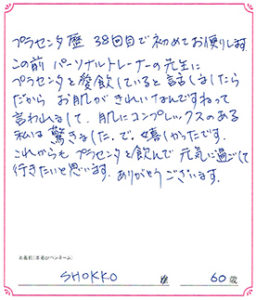 プラセンタ歴 38回目で初めてお便りします
この前 パーソナルトレーナーの先生に
プラセンタを愛飲していると話しましたら
だから お肌がきれいなんですねって
言われまして、肌にコンプレックスのある
私は驚きました。で、嬉しかったです。
これからもプラセンタを飲んで 元気に過ごして
行きたいと思います。ありがとうございます。
SHOKKO 様 60歳